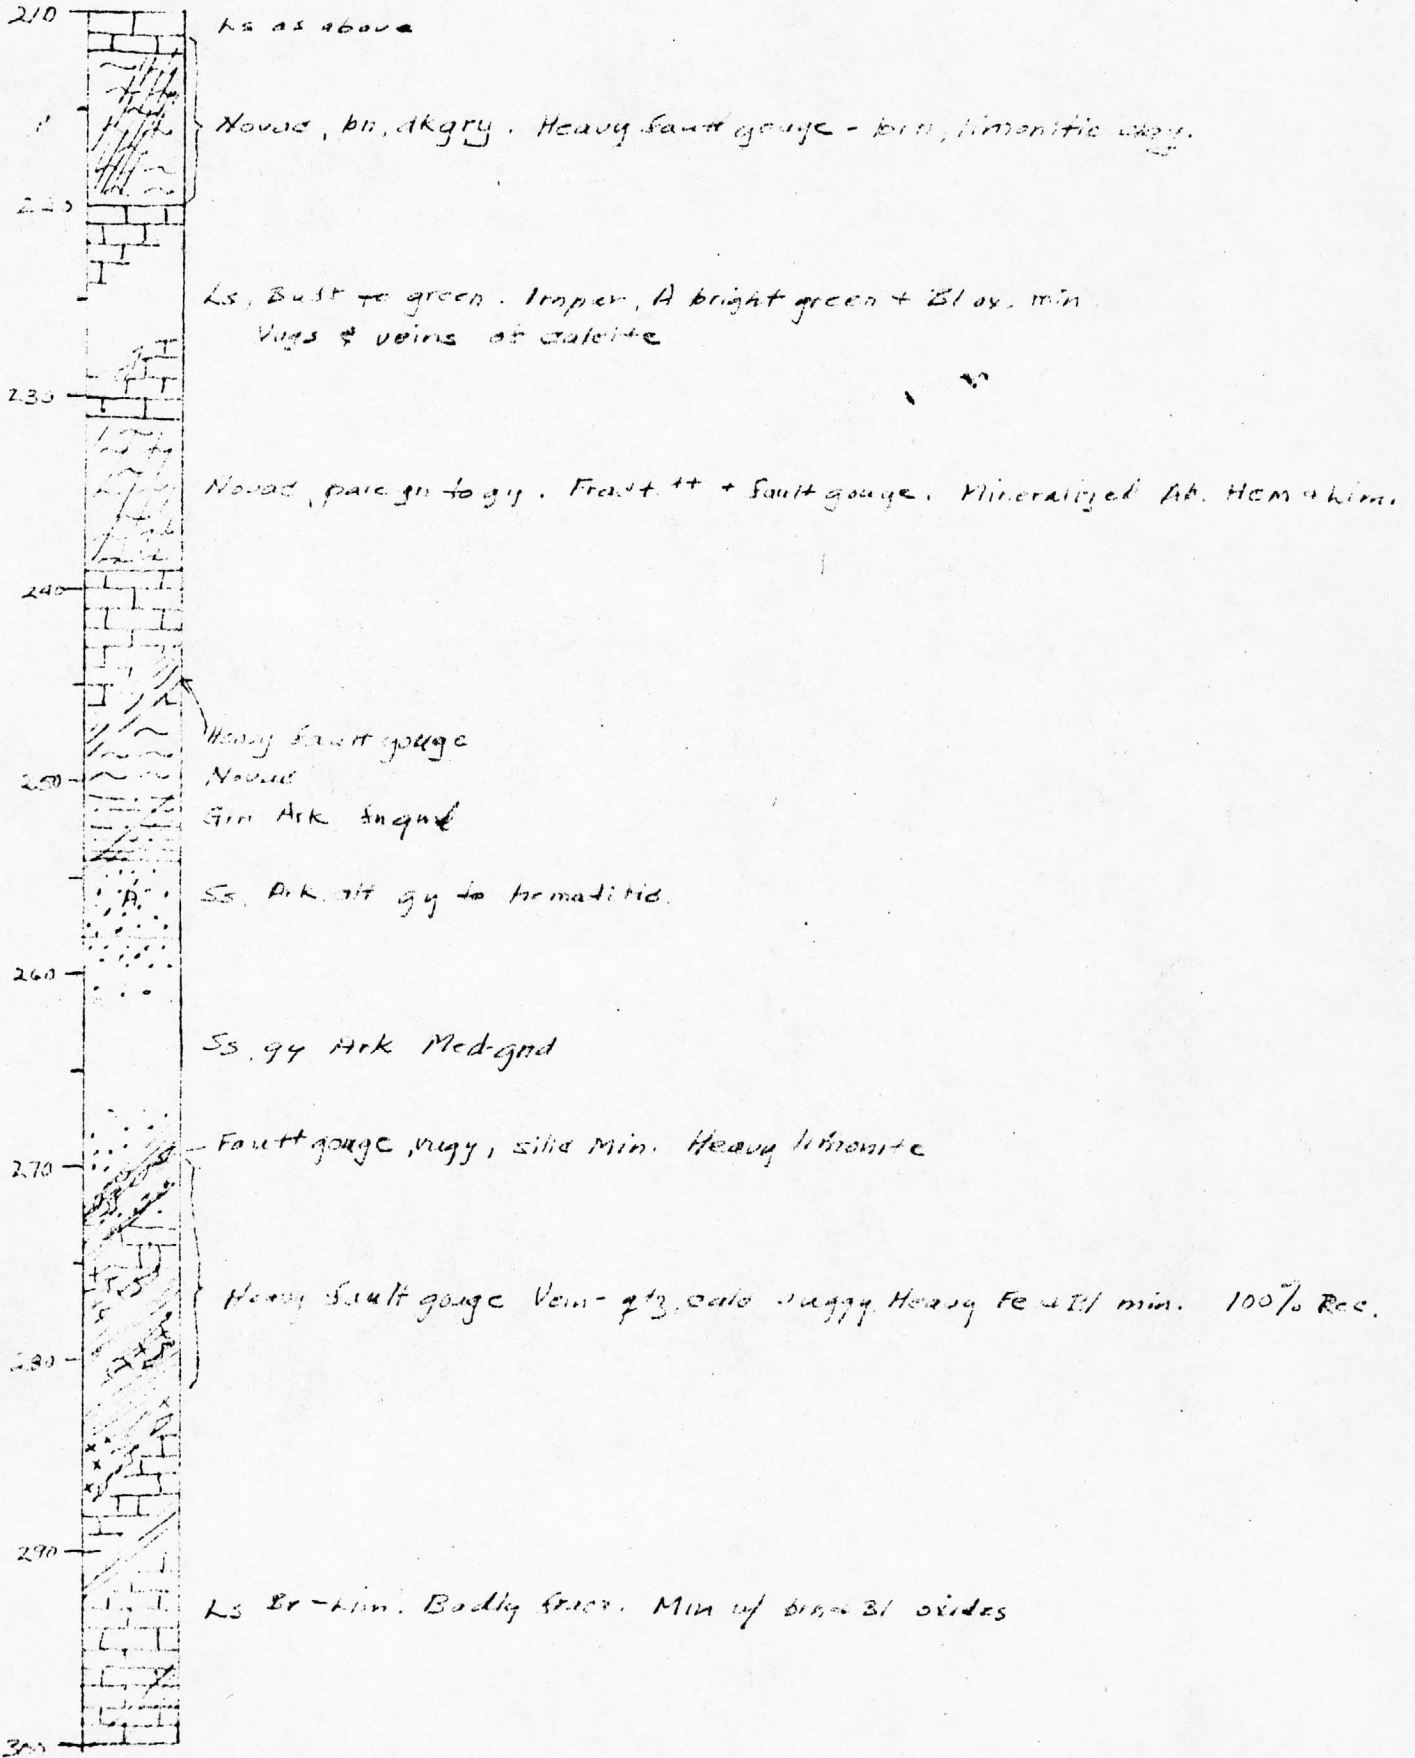 210
Ls as above
Novac, bn, dkgry. Heavy fault gouge - brn, limonitic clay.
220
Ls, Buff to green. Imper, A bright green + Bl ox. min
Vugs & veins of calcite
230
Novac, pale gn to gy. Fract. ++ + fault gouge. Mineralized Ab. Hem + Lim.
240
Heavy fault gouge
Novac
250
Grn Ark fngnd
A
Ss, Ark, alt gy to hematitic.
260
Ss, gy Ark Med-gnd
Fault gouge, vugy, silic Min. Heavy limonite
270
Heavy fault gouge Vein - qtz, calc vuggy, Heavy Fe + Bl min. 100% Rec.
280
290
Ls Br - Lim. Badly fracr. Min w/ brn + Bl oxides
300